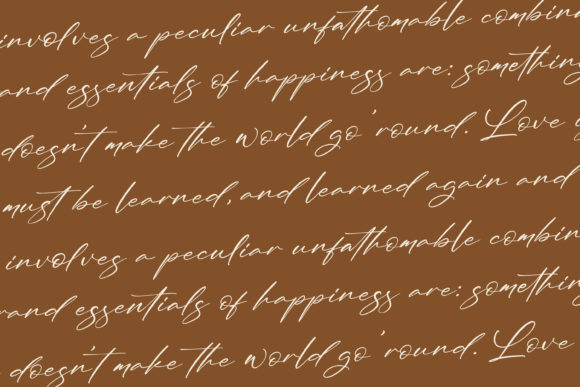 involves a peculiar unfathomable combin
rand essentials of happiness are: something
doesn't make the world go 'round. Love
must be learned, and learned again and
involves a peculiar unfathomable combin
rand essentials of happiness are: something
doesn't make the world go 'round. Love